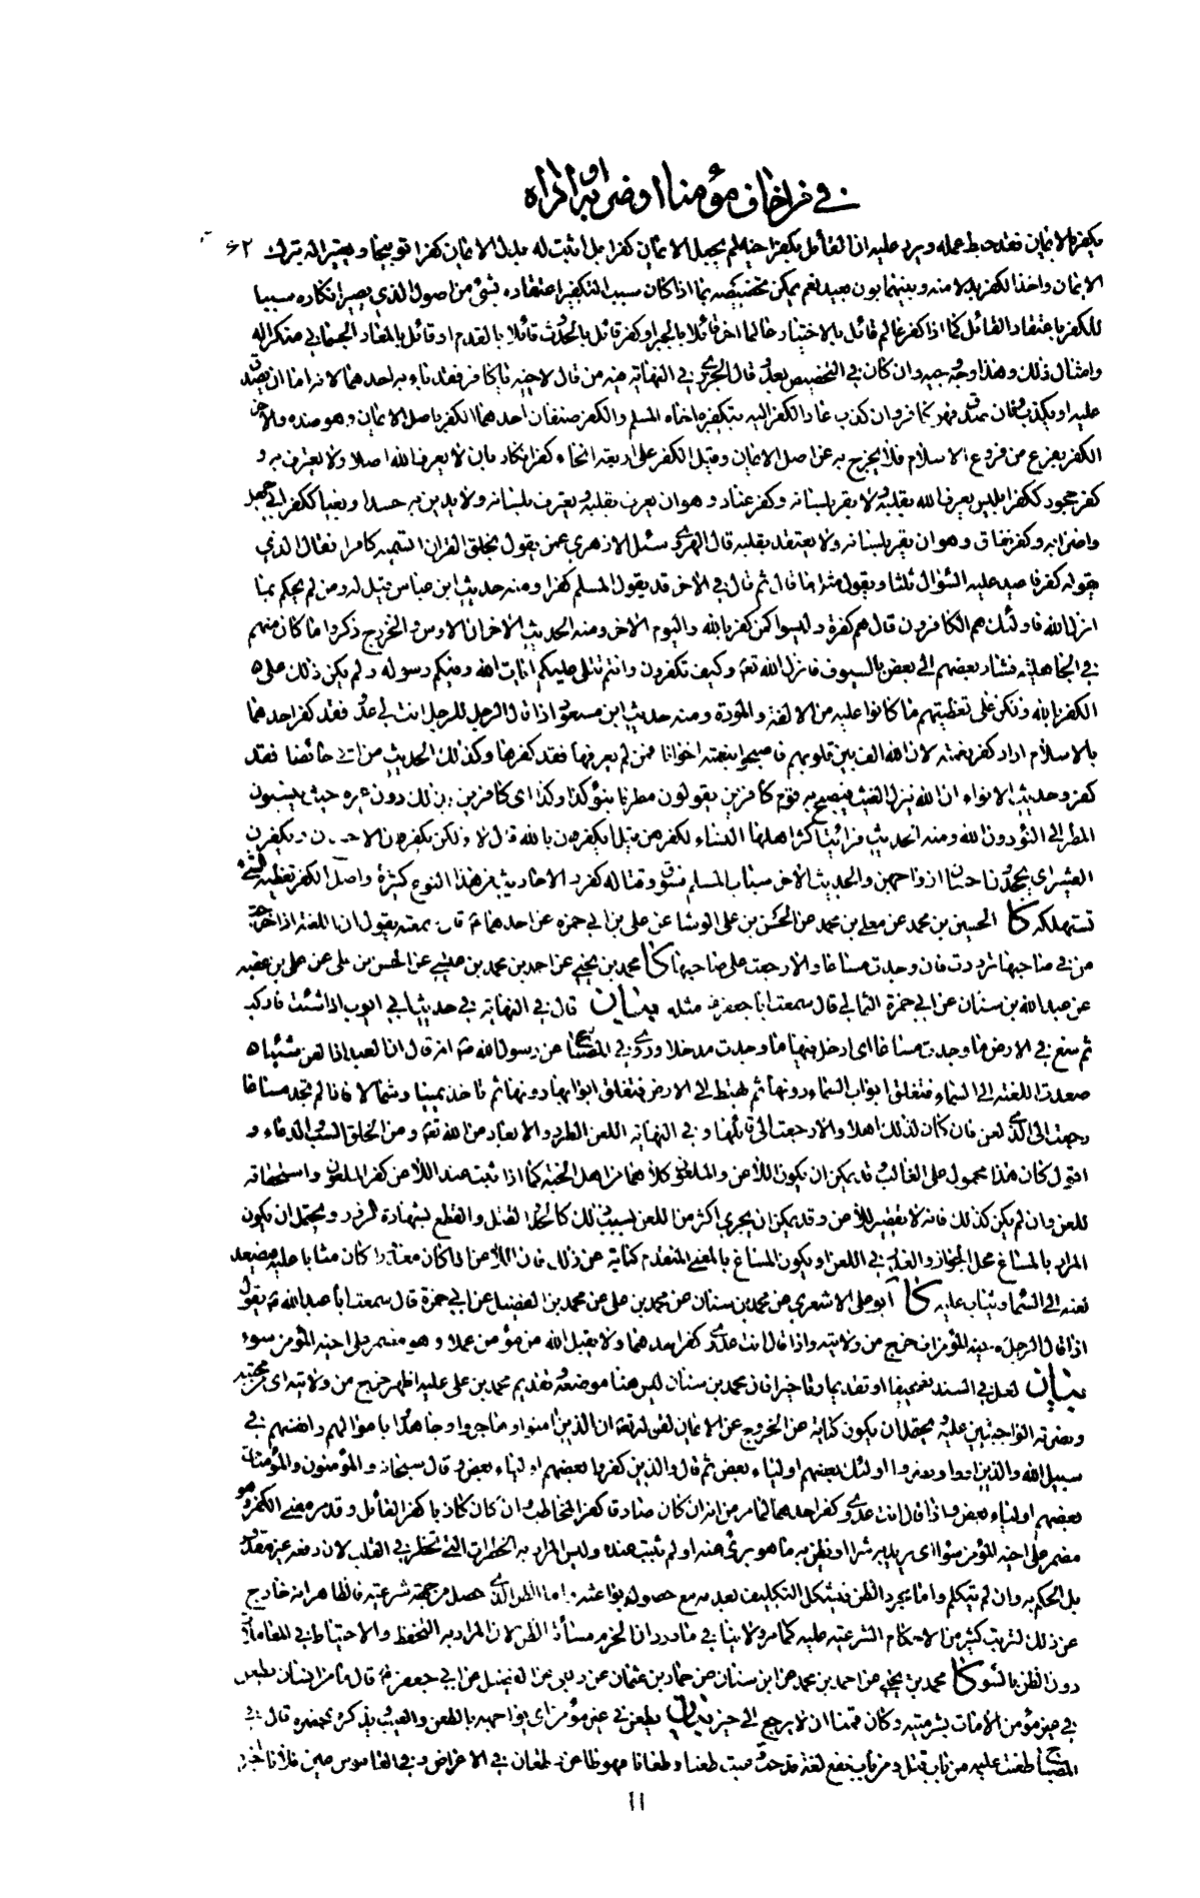 في من اخاف مؤمنا او ضربه او اذاه
بكفره الايمان فقد حبط عمله ويرد عليه ان القائل بكفر اخيه لم يجعل الايمان كفرا بل اثبت له بدل الايمان كفرا توبيخا وتعييرا له بترك ٤٦٢
الايمان واخذ الكفر بدلا منه وبينهما بون بعيد نعم يمكن تخصيصه بما اذا كان سبب التكفير اعتقاده بشئ من اصول الذي يصير انكاره سببا
للكفر باعتقاد القائل كما اذا كفر عالم قائل بالاختيار عالما اخر قائلا بالجبر او كفر قائل بالحدوث قائلا بالقدم او قائل بالمعاد الجسماني منكرا له
وامثال ذلك وهذا وجه جيد وان كان في التخصيص بعد وقال الجزري في النهاية فيه من قال لاخيه يا كافر فقد باء به احدهما لانه اما ان يصدق
عليه او يكذب فان صدق فهو كافر وان كذب عاد الكفر اليه بتكفيره اخاه المسلم والكفر صنفان احدهما الكفر باصل الايمان وهو ضده والاخر
الكفر بفرع من فروع الاسلام فلا يخرج به عن اصل الايمان وقيل الكفر على اربعة انحاء كفر انكار بان لا يعرف الله اصلا ولا يعترف به و
كفر جحود ككفر ابليس يعرف الله بقلبه ولا يقر بلسانه وكفر عناد وهو ان يعرف بقلبه ويعترف بلسانه ولا يدين به حسدا وبغيا ككفر ابي جهل
واضرابه وكفر نفاق وهو ان يقر بلسانه ولا يعتقد بقلبه قال الهروي سئل الازهري عمن يقول بخلق القران اتسميه كافرا فقال الذي
يقوله كفر فاعيد عليه السؤال ثلثا ويقول مثل ما قال ثم قال في الاخر قد يقول المسلم كفرا ومنه حديث ابن عباس قيل له ومن لم يحكم بما
انزل الله فاولئك هم الكافرون قال هم كفرة وليسوا كمن كفر بالله واليوم الاخر ومنه الحديث الاخر ان الاوس والخزرج ذكروا ما كان منهم
في الجاهلية فثار بعضهم الى بعض بالسيوف فانزل الله تعه وكيف تكفرون وانتم تتلى عليكم ايات الله وفيكم رسوله ولم يكن ذلك على
الكفر بالله ولكن على تغطيتهم ما كانوا عليه من الالفة والمودة ومنه حديث ابن مسعود اذا قال الرجل للرجل انت لي عدو فقد كفر احدهما
بالاسلام اراد كفر نعمته لان الله الف بين قلوبهم فاصبحوا بنعمته اخوانا فمن لم يعرفها فقد كفرها وكذلك الحديث من اتى حائضا فقد
كفر وحديث الانواء ان الله ينزل الغيث فيصبح به قوم كافرين يقولون مطرنا بنؤ كذا وكذا اي كافرين بذلك دون غيره حيث ينسبون
المطر الى النؤ دون الله ومنه الحديث فرايت اكثر اهلها النساء لكفرهن قيل ايكفرن بالله قال لا ولكن يكفرن الاحسان ويكفرن
العشير اي يجحدن احسان ازواجهن والحديث الاخر سباب المسلم فسوق وقتاله كفر والاحاديث من هذا النوع كثيرة واصل الكفر تغطية الشئ
تستهلكه كا الحسين بن محمد عن معلى بن محمد عن الحسن بن علي الوشا عن علي بن ابي حمزه عن احدهما ع قال سمعته يقول ان اللعنة اذا خرجت
من في صاحبها ترددت فان وجدت مساغا والا رجعت على صاحبها كا محمد بن يحيى عن احمد بن محمد بن عيسى عن الحسن بن علي عن علي بن عقبه
عن عبد الله بن سنان عن ابي حمزة الثمالي قال سمعت ابا جعفر ع مثله بيان قال في النهاية في حديث ابي ايوب اذا شئت فاركب
ثم سغ في الارض ما وجدت مساغا اي ادخل فيها ما وجدت مدخلا وروي في المصابيح عن رسول الله ص انه قال ان العبد اذا لعن شيئا
صعدت اللعنة الى السماء فتغلق ابواب السماء دونها ثم تهبط الى الارض فتغلق ابوابها دونها ثم تاخذ يمينا وشمالا فاذا لم تجد مساغا
رجعت الى الذي لعن فان كان لذلك اهلا والا رجعت الى قائلها و في النهاية اللعن الطرد والابعاد من الله تعه ومن الخلق السب والدعاء و
اقول كان هذا محمول على الغالب فانه يمكن ان يكون اللاعن والملعون كلاهما من اهل الجنة كما اذا ثبت عند اللاعن كفر الملعون واستحقاقه
للعن وان لم يكن كذلك فانه لا تقصير للاعن وقد يمكن ان يجري اكثر من اللعن بسبب ذلك كالحد والقتل والقطع بشهادة الزور ويحتمل ان يكون
المراد بالمساغ محل الجواز والعذر في اللعن او يكون المساغ بالمعنى المتقدم كناية عن ذلك فان اللاعن اذا كان معذورا كان مثابا عليه فيصعد
لعنه الى السماء ويثاب عليه كا ابو علي الاشعري عن محمد بن سنان عن محمد بن علي عن محمد بن الفضيل عن ابي حمزة قال سمعت ابا عبد الله ع يقول
اذا قال الرجل لاخيه المؤمن اف خرج من ولايته واذا قال انت عدوي كفر احدهما ولا يقبل الله من مؤمن عملا وهو مضمر على اخيه المؤمن سوء
بيان لعل في السند تصحيفا او تقديما وتاخيرا فان محمد بن سنان ليس هنا موضعه وتقديم محمد بن علي عليه اظهر خرج من ولايته اي محبته
ونصرته الواجبتين عليه ويحتمل ان يكون كناية عن الخروج عن الايمان لقوله تعه ان الذين امنوا وهاجروا وجاهدوا باموالهم وانفسهم في
سبيل الله والذين اووا ونصروا اولئك بعضهم اولياء بعض ثم قال والذين كفروا بعضهم اولياء بعض وقال سبحانه والمؤمنون والمؤمنات
بعضهم اولياء بعض واذا قال انت عدوي كفر احدهما لما مر من انه ان كان صادقا كفر المخاطب وان كان كاذبا كفر القائل وقد مر معنى الكفر وهو
مضمر على اخيه المؤمن سؤا اي يريد به شرا او يظن به ما هو برئ عنه او لم يثبت عنده وليس المراد به الخطرات التي تخطر في القلب لان دفعه غير مقدور
بل الحكم به وان لم يتكلم واما مجرد الظن فيشكل التكليف بعدمه مع حصول بواعثه واما الظن الذي حصل من جهة شرعية فالظاهر انه خارج
عن ذلك لترتب كثير من الاحكام الشرعية عليه كما مر ولا ينافي ما ورد ان الحزم مساءة الظن لان المراد به التحفظ والاحتياط في المعاملات
دون الظن بالسوء كا محمد بن يحيى عن احمد بن محمد عن ابن سنان عن حماد بن عثمان عن ربعي عن الفضيل عن ابي جعفر ع قال ما من انسان يطعن
في عين مؤمن الا مات بشر ميتة وكان قمنا ان لا يرجع الى خير بيان يطعن في عين مؤمن اي يواجهه بالطعن والعيب ويذكره بمحضره قال في
المصباح طعنت عليه من باب قتل ومن باب نفع لغة قدحت وعبت طعنا وطعانا فهو طاعن وطعان في الاعراض وفي القاموس عين فلانا اخبره
١١